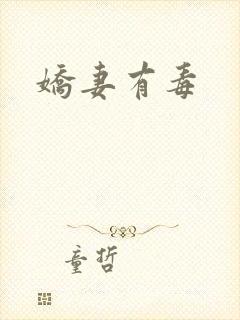 嬌妻有毒
童哲